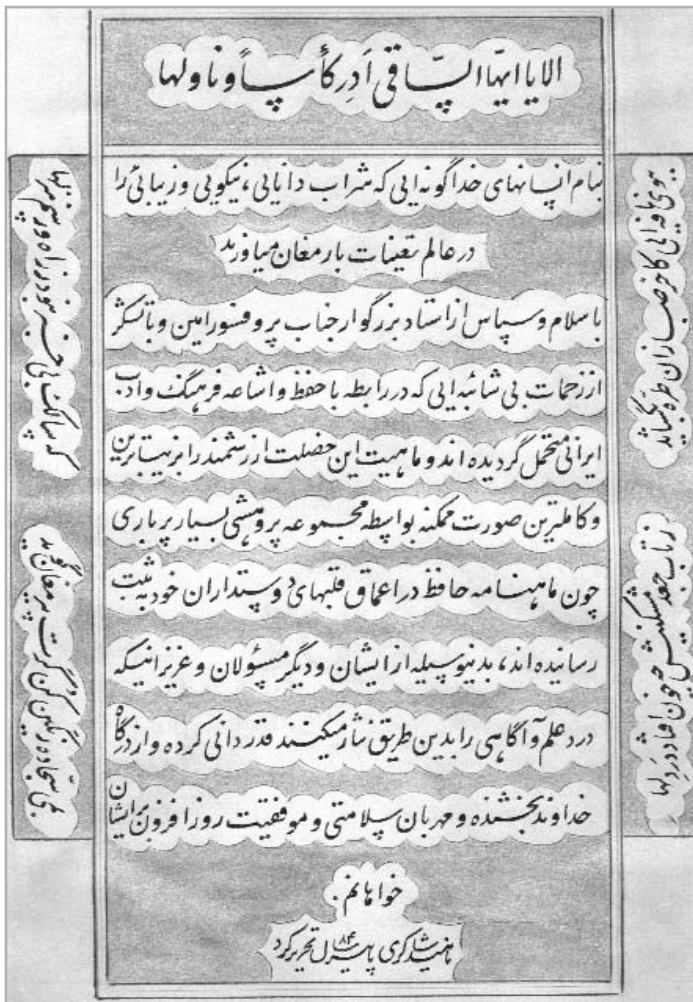 الا یا ایها الساقی اَدِر کأساً و ناولها
بنام انسانهای خداگونه‌ایی که شراب دانایی، نیکویی و زیبائی را
در عالم تعینات بارمغان میاورند
با سلام و سپاس از استاد بزرگوار جناب پروفسور امین و با تشکر
از زحمات بی شائبه‌ایی که در رابطه با حفظ و اشاعه فرهنگ و ادب
ایرانی متحمل گردیده‌اند و ماهیت این خصلت ارزشمند را بزیباترین
و کاملترین صورت ممکنه بواسطه مجموعه پژوهشی بسیار پرباری
چون ماهنامه حافظ در اعماق قلبهای دوستداران خود به ثبت
رسانیده‌اند، بدنیوسیله از ایشان و دیگر مسئولان و عزیزانیکه
درد علم و آگاهی را بدین طریق نثار میکنند قدردانی کرده و از درگاه
خداوند بخشنده و مهربان سلامتی و موفقیت روزافزون برایشان
خواهانم.
شاکری پاییز سال ۸۴ تحریر کرد
ببوی نافه‌ایی کاخر صبا زان طره بگشاید
ز تاب جعد مشکینش چه خون افتاد در دلها
بمی سجاده رنگین کن گرت پیر مغان گوید
که سالک بی خبر نبود ز راه و رسم منزلها